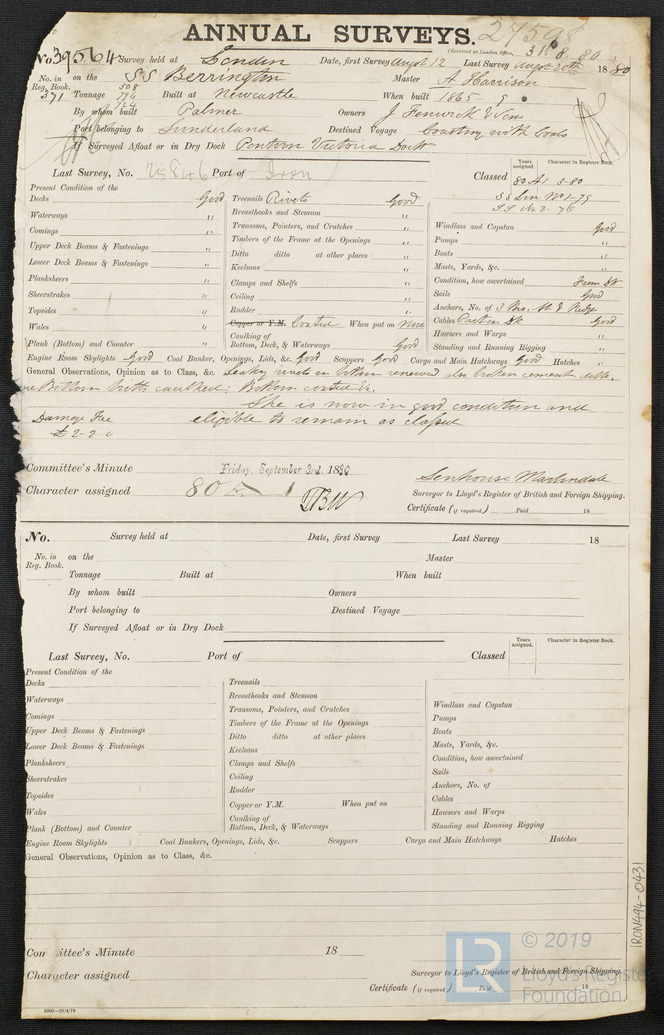 ANNUAL SURVEYS. 27598
(Received at London Office, 31. 8. 80
No. 39564 Survey held at London Date, first Survey Augst 12 Last Survey Augst 20th 1880
No. in Reg. Book. 371 on the SS Berrington Master A Harrison
508
Tonnage 794 Built at Newcastle When built 1865
724
By whom built Palmer Owners J Fenwick & Sons
Port belonging to Sunderland Destined Voyage Coasting with Coals
If Surveyed Afloat or in Dry Dock Victoria Dock
Last Survey, No. Port of Iron Classed
Years assigned. Character in Register Book.
80 A1 8-80
SS Lon No 1-75
SS No 3-76
Present Condition of the
Decks Good Treenails Rivets Good
Waterways " Breasthooks and Stemson " Windlass and Capstan Good
Comings " Transoms, Pointers, and Crutches " Pumps "
Upper Deck Beams & Fastenings " Timbers of the Frame at the Openings " Boats "
Lower Deck Beams & Fastenings " Ditto ditto at other places " Masts, Yards, &c. "
Planksheers " Keelsons " Condition, how ascertained From Dk
Sheerstrakes " Clamps and Shelfs " Sails Good
Topsides " Ceiling " Anchors, No. of 3
Wales " Rudder " Cables Good
Plank (Bottom) and Counter " Copper or Y.M. Coated When put on Now Hawsers and Warps "
Caulking of Bottom, Deck, & Waterways Good Standing and Running Rigging "
Engine Room Skylights Good Coal Bunker, Openings, Lids, &c. Good Scuppers Good Cargo and Main Hatchways Good Hatches "
General Observations, Opinion as to Class, &c. Leaky rivets in bottom renewed also broken cement ditto.
Bottom butts caulked: Bottom coated &c.
She is now in good condition and
Damage Fee eligible to remain as classed
£ 2-2-0
Committee's Minute Friday, September 3rd, 1880
Character assigned 80 A 1
Senhouse Martindale
Surveyor to Lloyd's Register of British and Foreign Shipping.
Certificate (if required) Paid 18
No. Survey held at Date, first Survey Last Survey 18
No. in Reg. Book. on the Master
Tonnage Built at When built
By whom built Owners
Port belonging to Destined Voyage
If Surveyed Afloat or in Dry Dock
Last Survey, No. Port of Classed
Years assigned. Character in Register Book.
Present Condition of the
Decks Treenails
Waterways Breasthooks and Stemson Windlass and Capstan
Comings Transoms, Pointers, and Crutches Pumps
Upper Deck Beams & Fastenings Timbers of the Frame at the Openings Boats
Lower Deck Beams & Fastenings Ditto ditto at other places Masts, Yards, &c.
Planksheers Keelsons Condition, how ascertained
Sheerstrakes Clamps and Shelfs Sails
Topsides Ceiling Anchors, No. of
Wales Rudder Cables
Plank (Bottom) and Counter Copper or Y.M. When put on Hawsers and Warps
Caulking of Bottom, Deck, & Waterways Standing and Running Rigging
Engine Room Skylights Coal Bunkers, Openings, Lids, &c. Scuppers Cargo and Main Hatchways Hatches
General Observations, Opinion as to Class, &c.
Committee's Minute 18
Character assigned
Surveyor to Lloyd's Register of British and Foreign Shipping.
Certificate (if required) Paid 18
IRON494-0431
LR © 2019
Lloyd's Register
Foundation